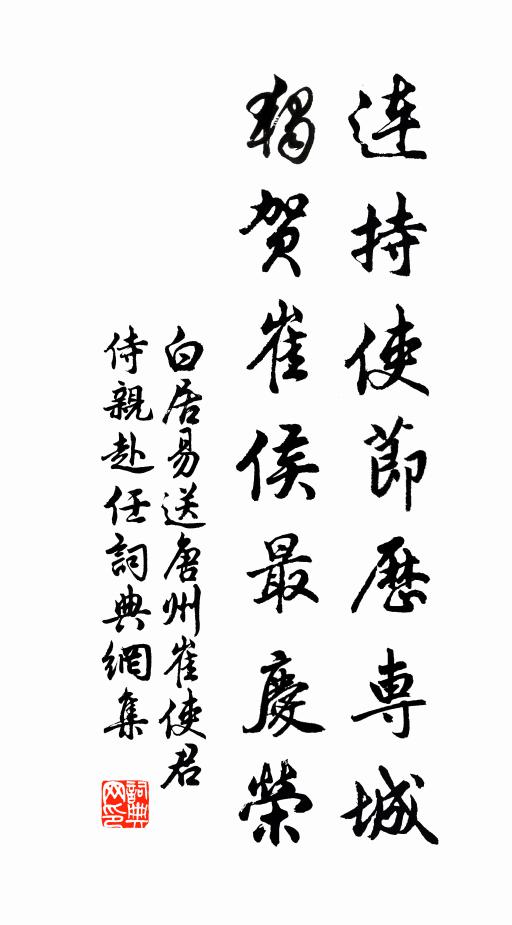 連持使節歷專城
獨賀崔侯最慶榮
白居易送唐州崔使君
侍親赴任詞典網集
詞典网印